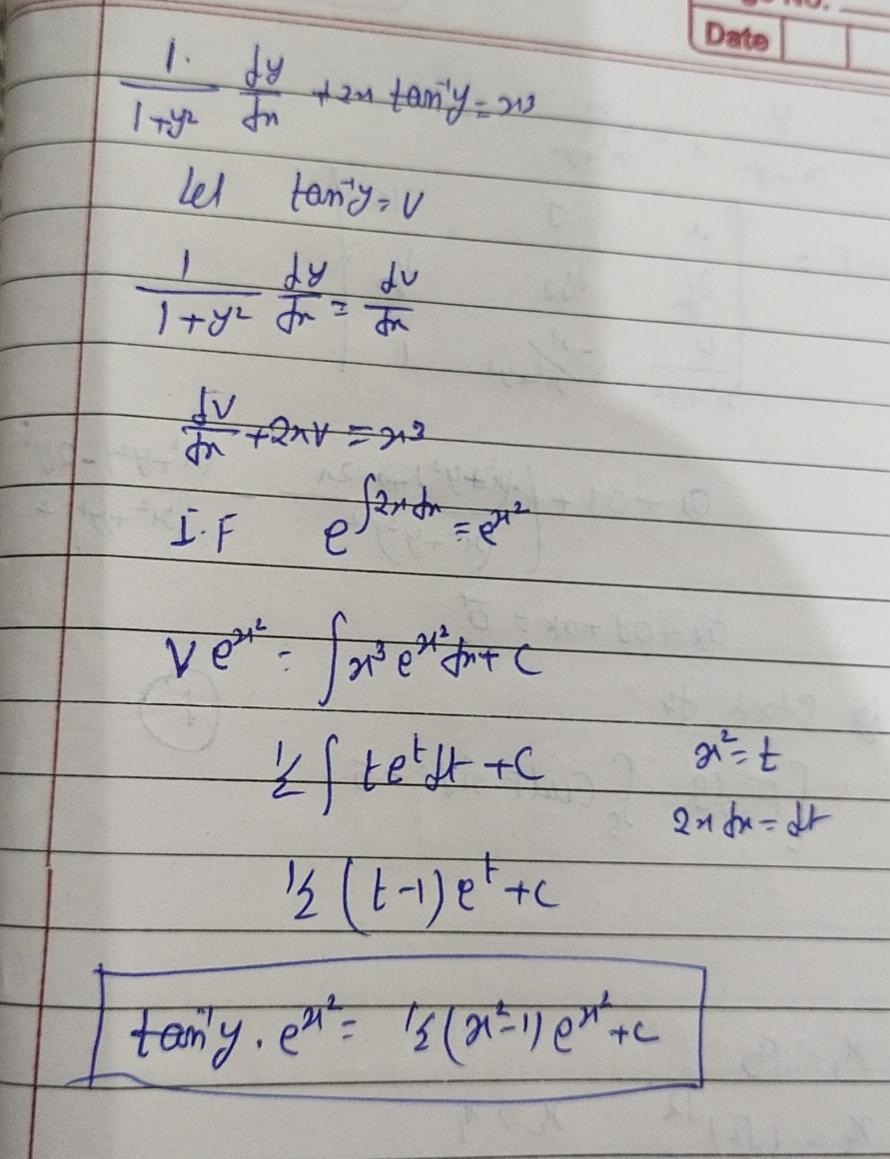 Date
1/(1+y²) dy/dx + 2x tan⁻¹y = x³
Let tan⁻¹y = V
1/(1+y²) dy/dx = dv/dx
dv/dx + 2xV = x³
I.F e^∫2x dx = e^x²
V e^x² = ∫x³ e^x² dx + C
½ ∫ t e^t dt + C x² = t
2x dx = dt
½ (t-1) e^t + C
tan⁻¹y . e^x² = ½ (x²-1) e^x² + c